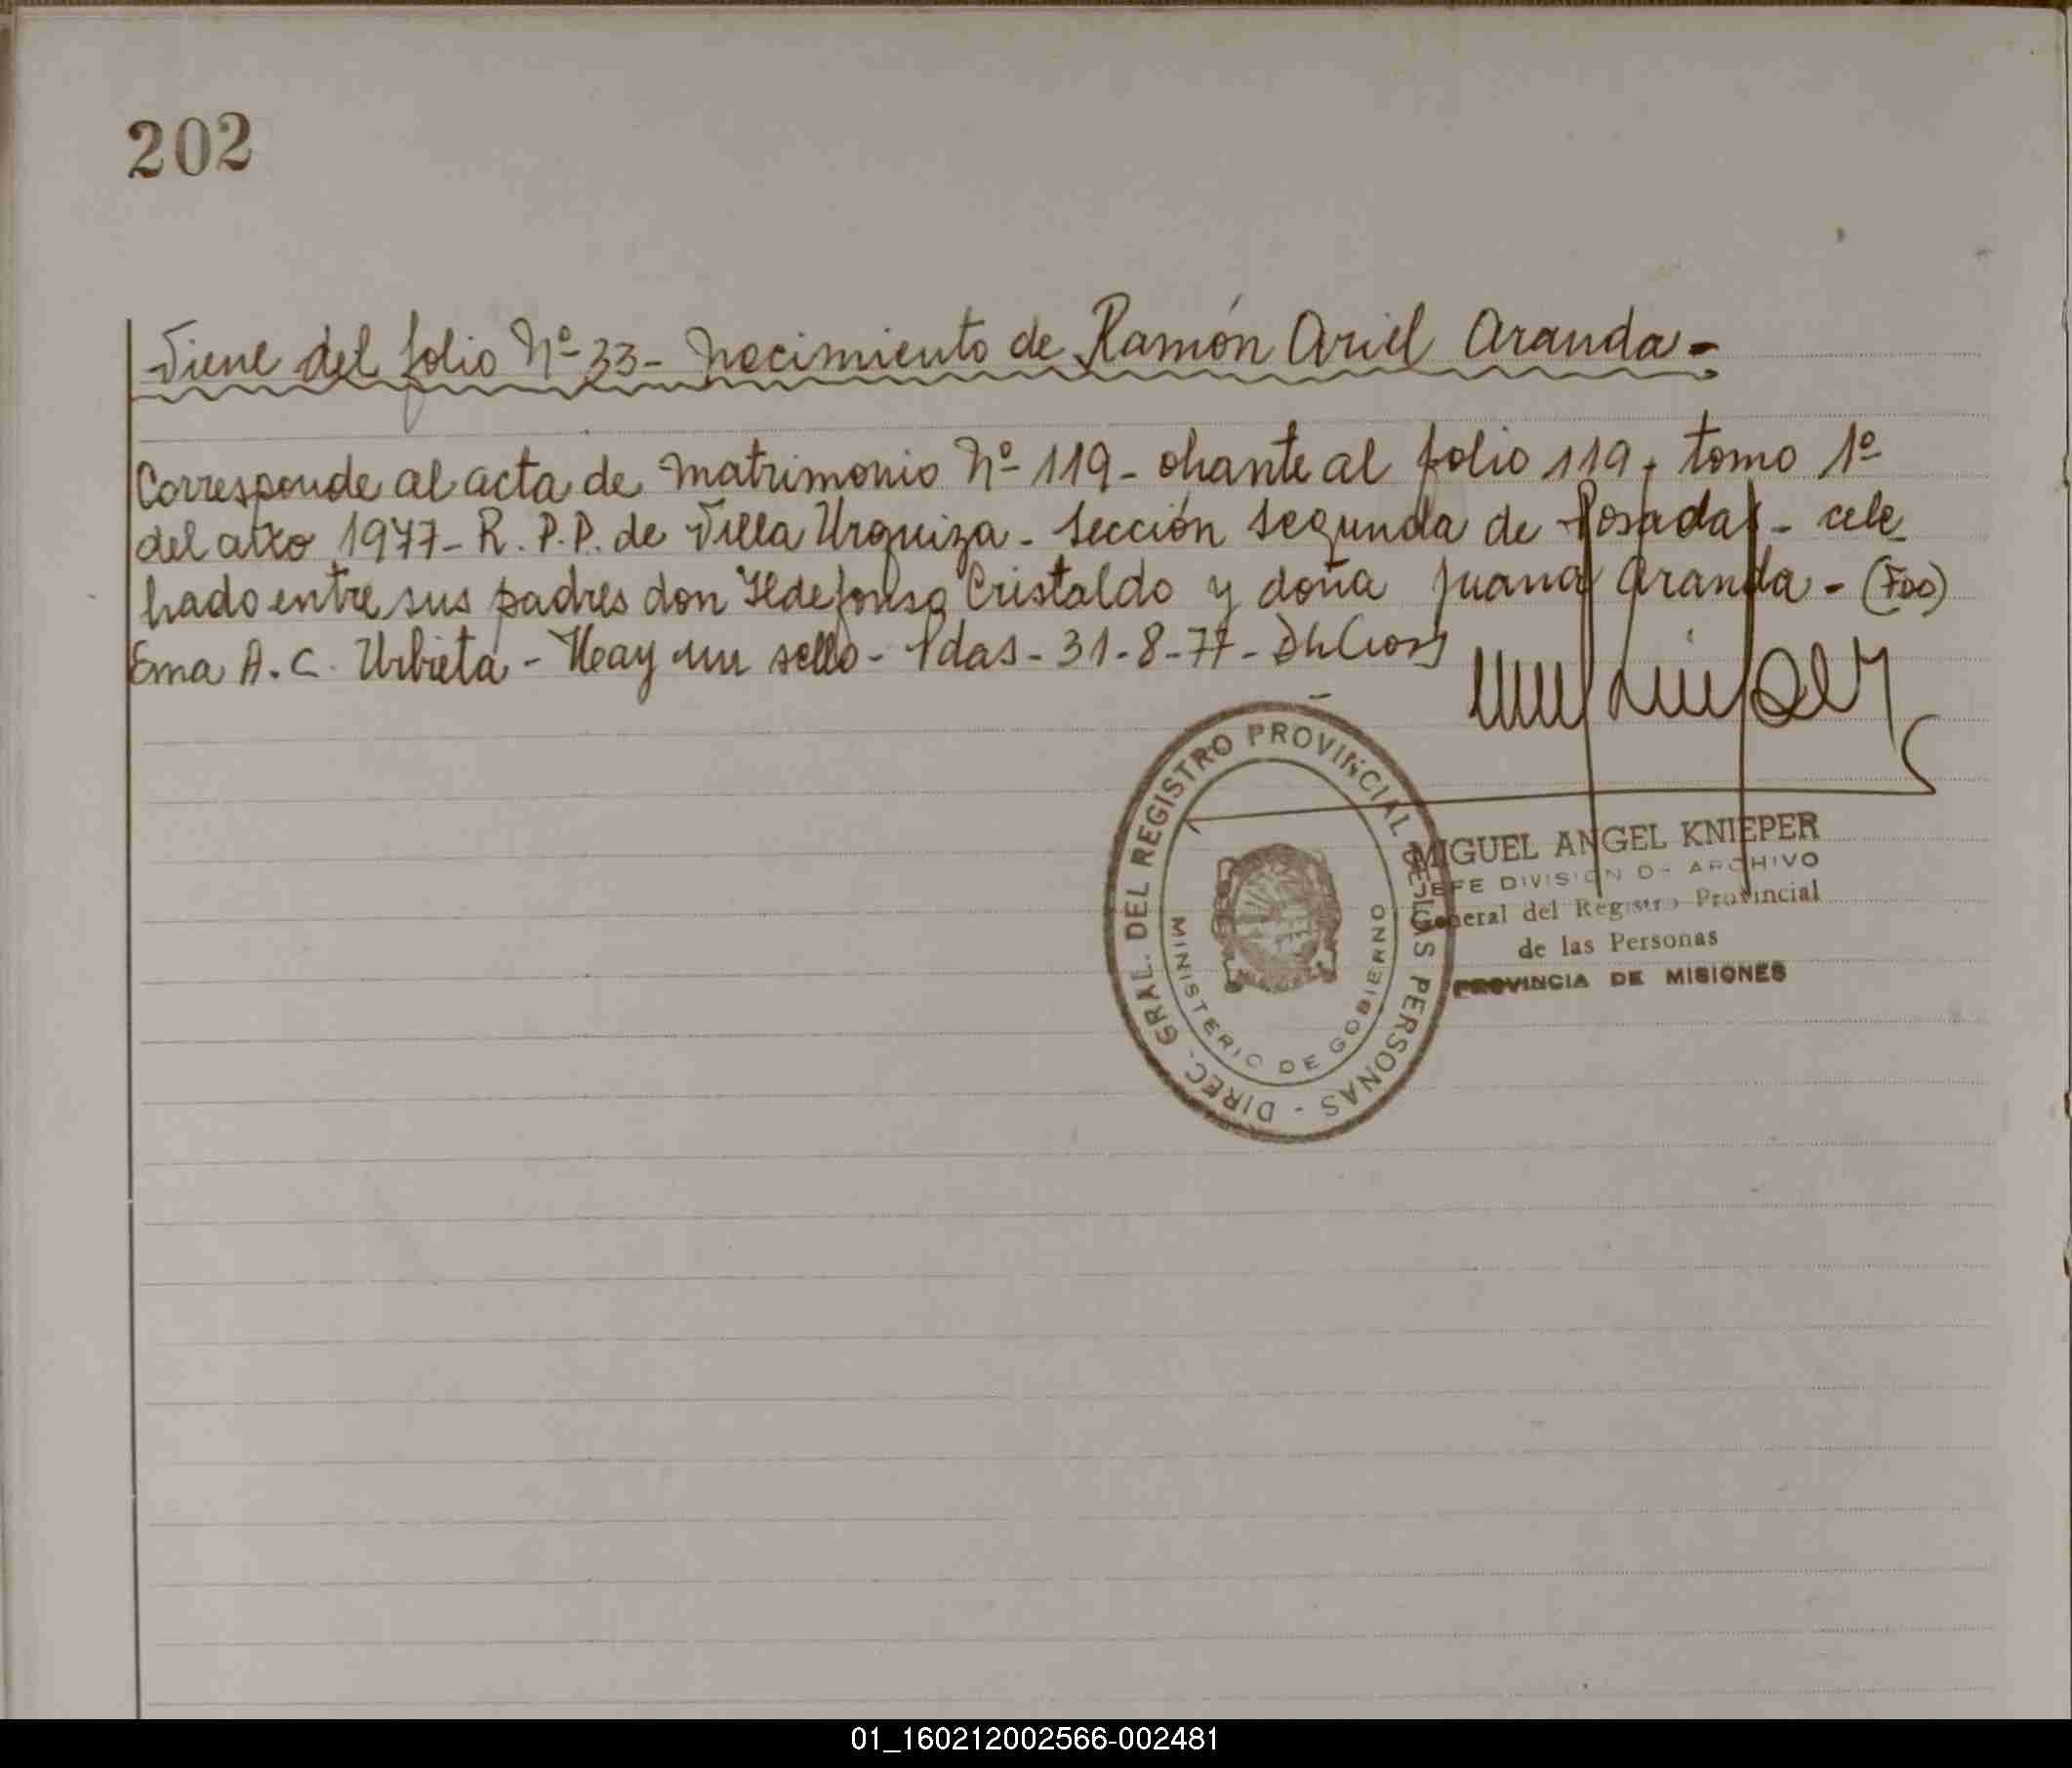 202
Viene del folio Nº 33- Nacimiento de Ramón Ariel Aranda-
Corresponde al acta de Matrimonio Nº 119- obrante al folio 119, tomo 1º
del año 1977- R. P. P. de Villa Urquiza- Sección Segunda de Posadas- cele
brado entre sus padres don Ildefonso Cristaldo y doña Juana Aranda- (Fdo)
Ema A. C. Urbieta- Hay un sello- Pdas- 31-8-77-
DIREC. GRAL. DEL REGISTRO PROVINCIAL DE LAS PERSONAS -
MINISTERIO DE GOBIERNO
MIGUEL ANGEL KNIEPER
JEFE DIVISION DE ARCHIVO
General del Registro Provincial
de las Personas
PROVINCIA DE MISIONES
01_160212002566-002481